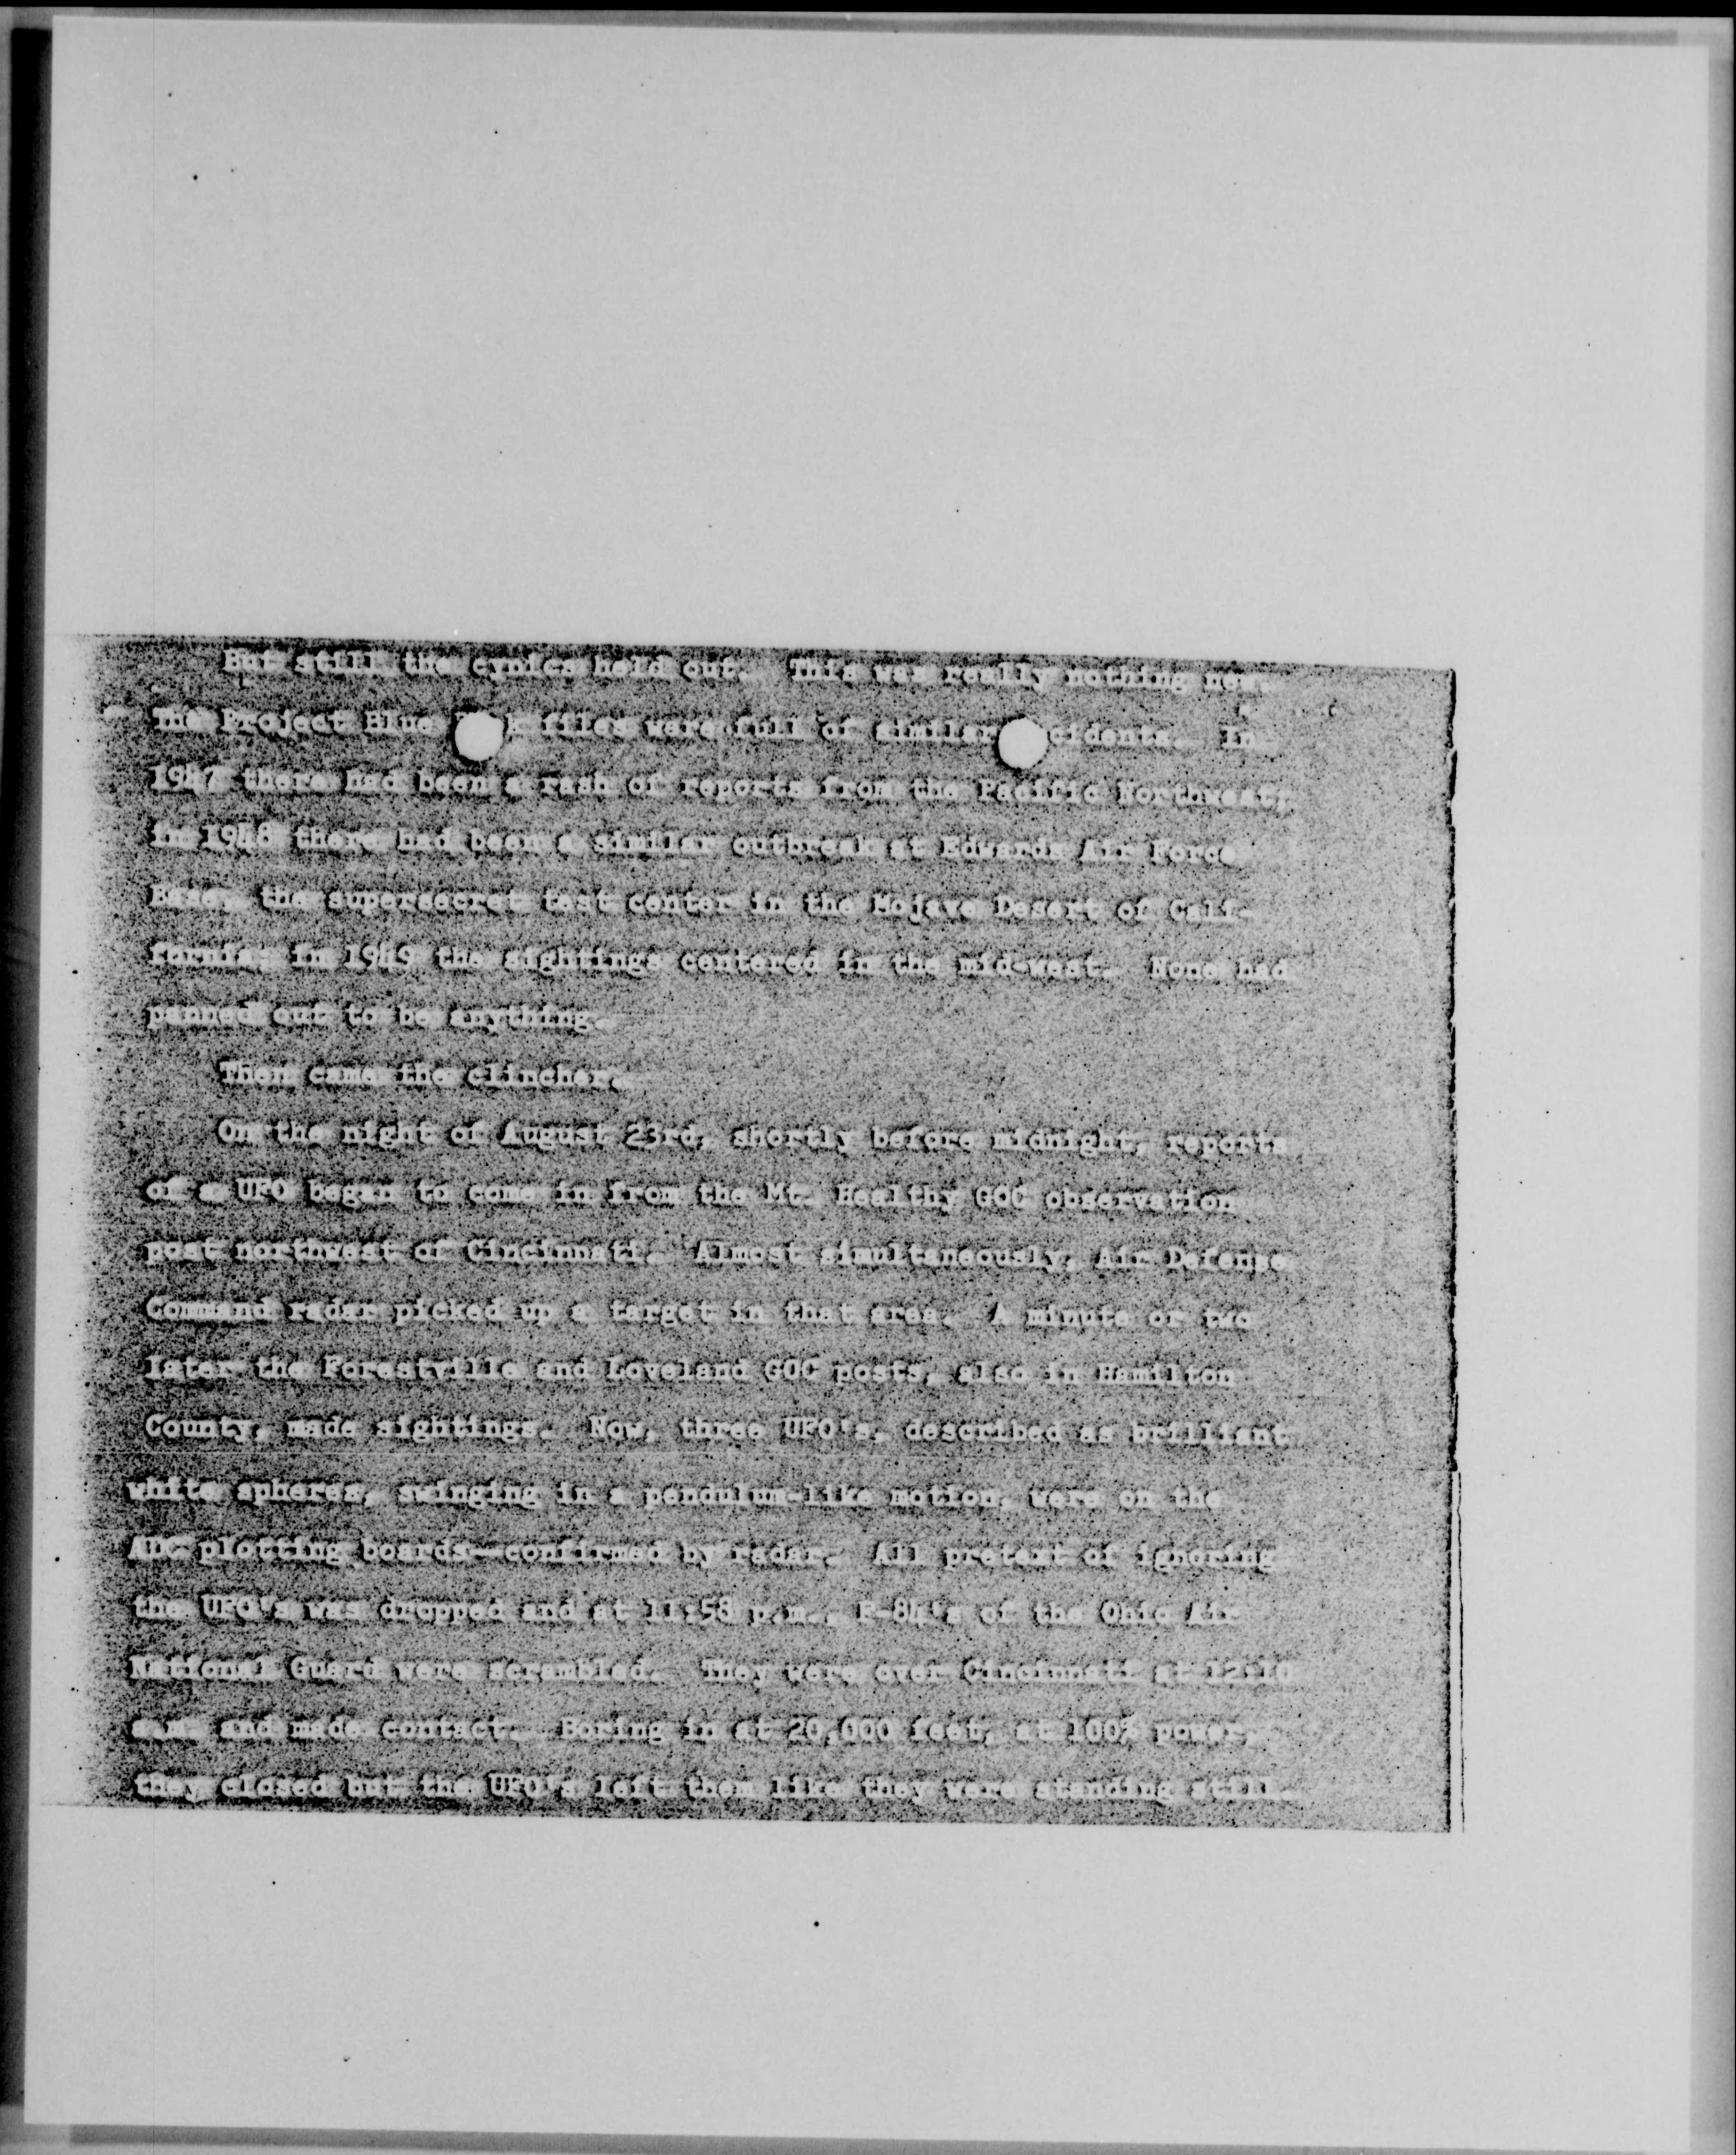 But still the cynics held out. This was really nothing new.
The Project Blue files were full of similar cidents. In
1947 there had been a rash of reports from the Pacific Northwest;
in 1948 there had been a similar outbreak at Edwards Air Force
Base, the supersecret test center in the Mojave Desert of Cali-
fornia; in 1949 the sightings centered in the mid-west. None had
panned out to be anything.
Then came the clincher.
On the night of August 23rd, shortly before midnight, reports
of a UFO began to come in from the Mt. Healthy GOC observation
post northwest of Cincinnati. Almost simultaneously, Air Defense
Command radar picked up a target in that area. A minute or two
later the Forestville and Loveland GOC posts, also in Hamilton
County, made sightings. Now, three UFO's, described as brilliant
white spheres, swinging in a pendulum-like motion, were on the
ADC plotting boards--confirmed by radar. All pretext of ignoring
the UFO's was dropped and at 11:58 p.m., F-84's of the Ohio Air
National Guard were scrambled. They were over Cincinnati at 12:10
a.m. and made contact. Boring in at 20,000 feet, at 100% power,
they closed but the UFO's left them like they were standing still.